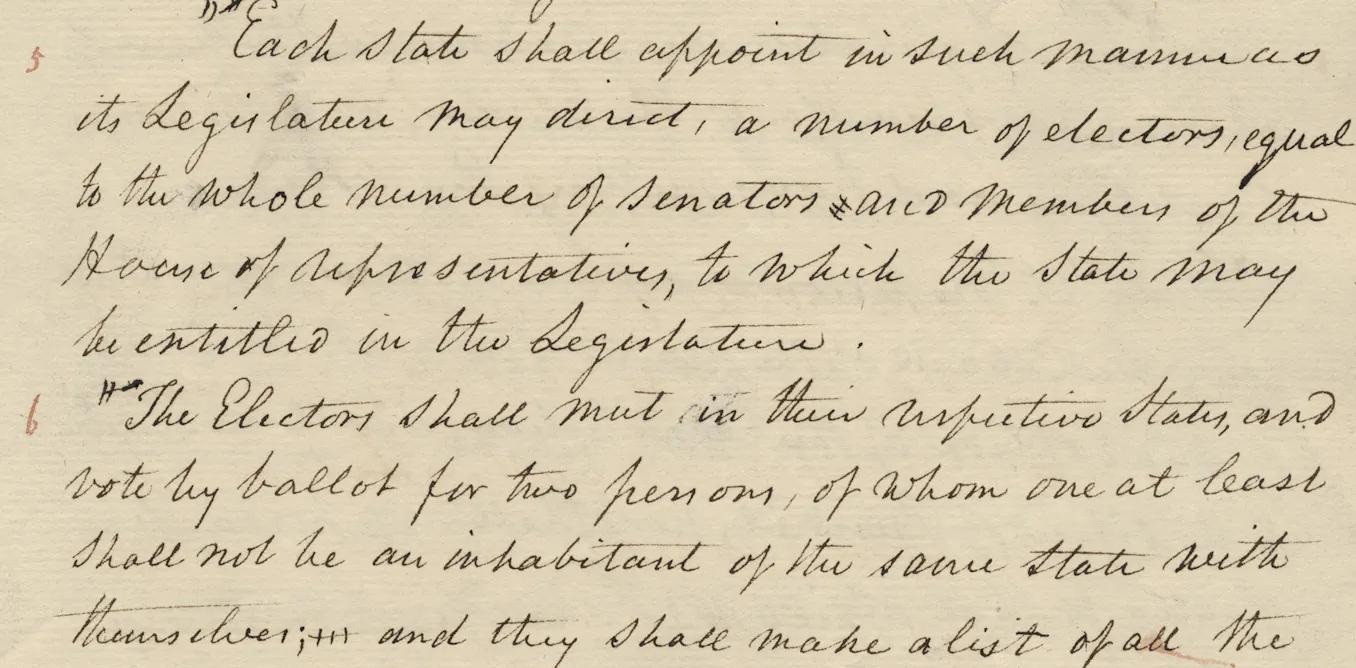 5 "Each State shall appoint in such manner as
its Legislature may direct, a number of electors, equal
to the whole number of Senators # and Members of the
House of representatives, to which the State may
be entitled in the Legislature.
6 "The Electors shall meet in their respective States, and
vote by ballot for two persons, of whom one at least
shall not be an inhabitant of the same State with
themselves; and they shall make a list of all the